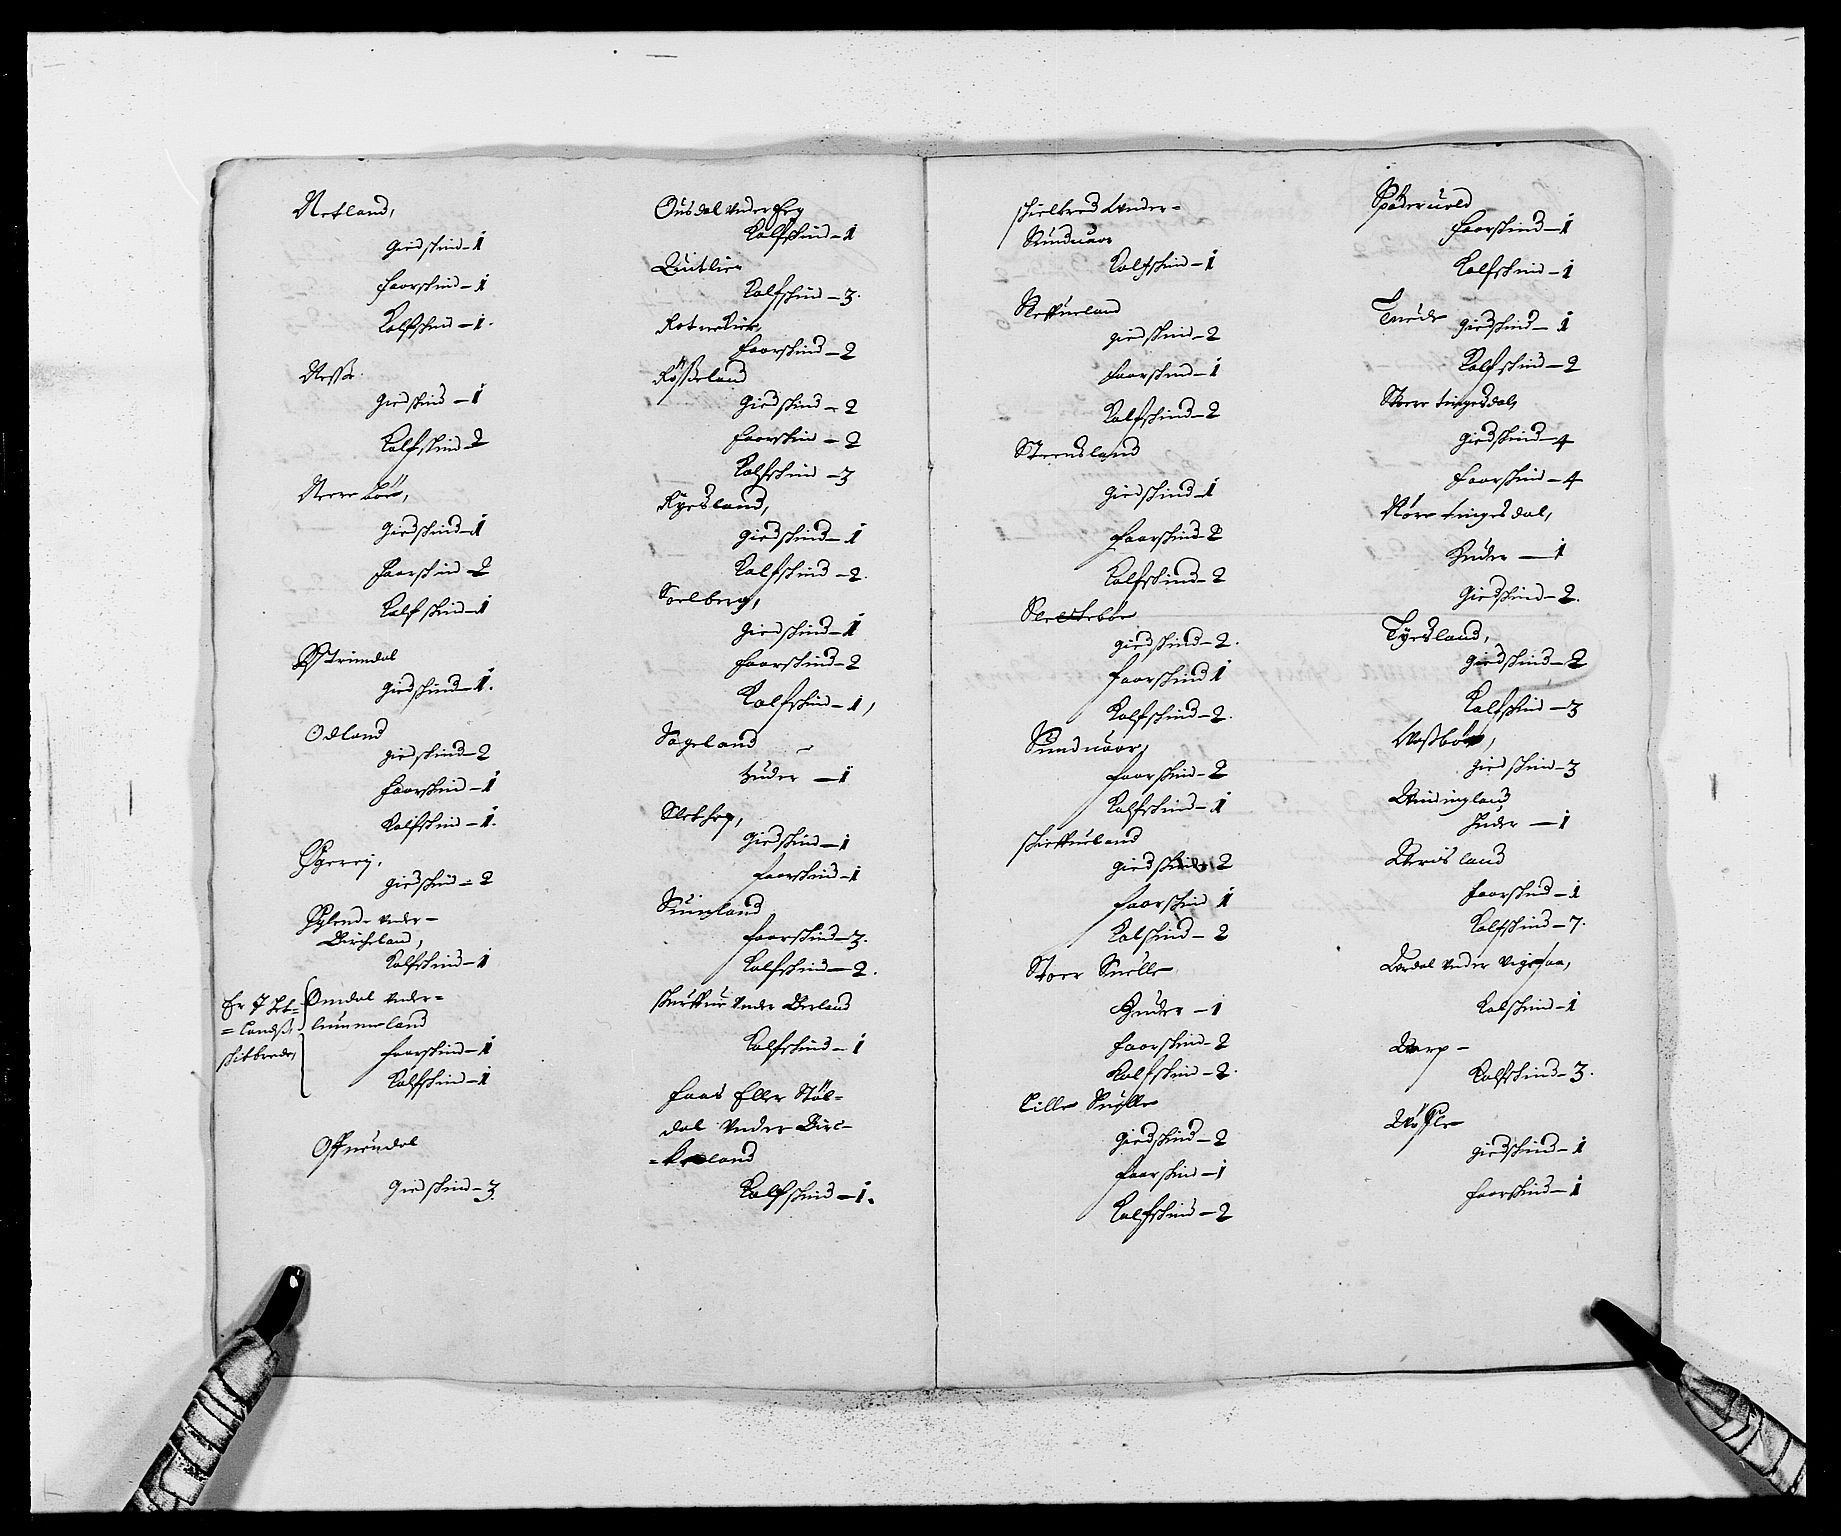 Netland,
giedskind - 1
faarskind - 1
Kalfskind - 1.
Nesse.
giedskind - 1
Kalfskind - 2
Nerre böe,
giedskind - 1
faarskind - 2
Kalfskind - 1
Østrimdal
giedskind - 1.
Odland
giedskind - 2
faarskind - 1
Kalfskind - 1.
Øgerrej.
giedskind - 2
Øglende under -
Bircheland,
Kalfskind - 1
Er J Het-
= landss
skibrede,
Omdal under =
lummeland
faarskind - 1
Kalfskind - 1
Offnendal
giedskind - 3.
Ousdal under Eeg
Kalfskind - 1
Qvitlier
Kalfskind - 3.
Rotnekier,
faarskind - 2
Rösseland
giedskind - 2
faarskind - 2
Kalfskind - 3
Rysland,
giedskind - 1
Kalfskind - 2.
Soelberg,
giedskind - 1
faarskind - 2
Kalfskind - 1,
Sageland
huder - 1
Slethej,
giedskind - 1
faarskind - 1
Suinland
faarskind - 3.
Kalfskind - 2.
under Berland
Kalfskind - 1
faas Eller Stöl-
dal under Birc-
= keland
Kalfskind - 1.
skielbred under -
Sunduaar
Kalfskind - 1
Slettueland
giedskind - 2
faarskind - 1
Kalfskind - 2
Steensland
giedskind - 1
faarskind - 2
Kalfskind - 2
Sletteböe
giedskind - 2.
faarskind 1
Kalfskind - 2.
Sunduaar,
faarskind - 2
Kalfskind - 1
skieffueland
giedskind - 2
faarskind 1
Kalskind - 2
Stoer Suelle
Huder - 1
faarskind - 2
Kalfskind - 2.
Lille Suelle
giedskind - 2
faarskind - 1
Kalfskind - 2
Spöderuold
faarskind - 1
Kalfskind - 1
Tuede giedskind - 1
Kalfskind - 2
Stoere tingesdal,
giedskind - 4
faarskind - 4
Nöre tingesdal,
Huder - 1
giedskind - 2.
Tyesland,
giedskind - 2
Kalfskind - 3
Wasböe,
giedskind - 3
Windingland
huder - 1
land
faarskind - 1
Kalfskind - 7.
under Vigesaa,
Kalskind - 1
Warp -
Kalfskind - 3.
giedskind - 1
faarskind - 1